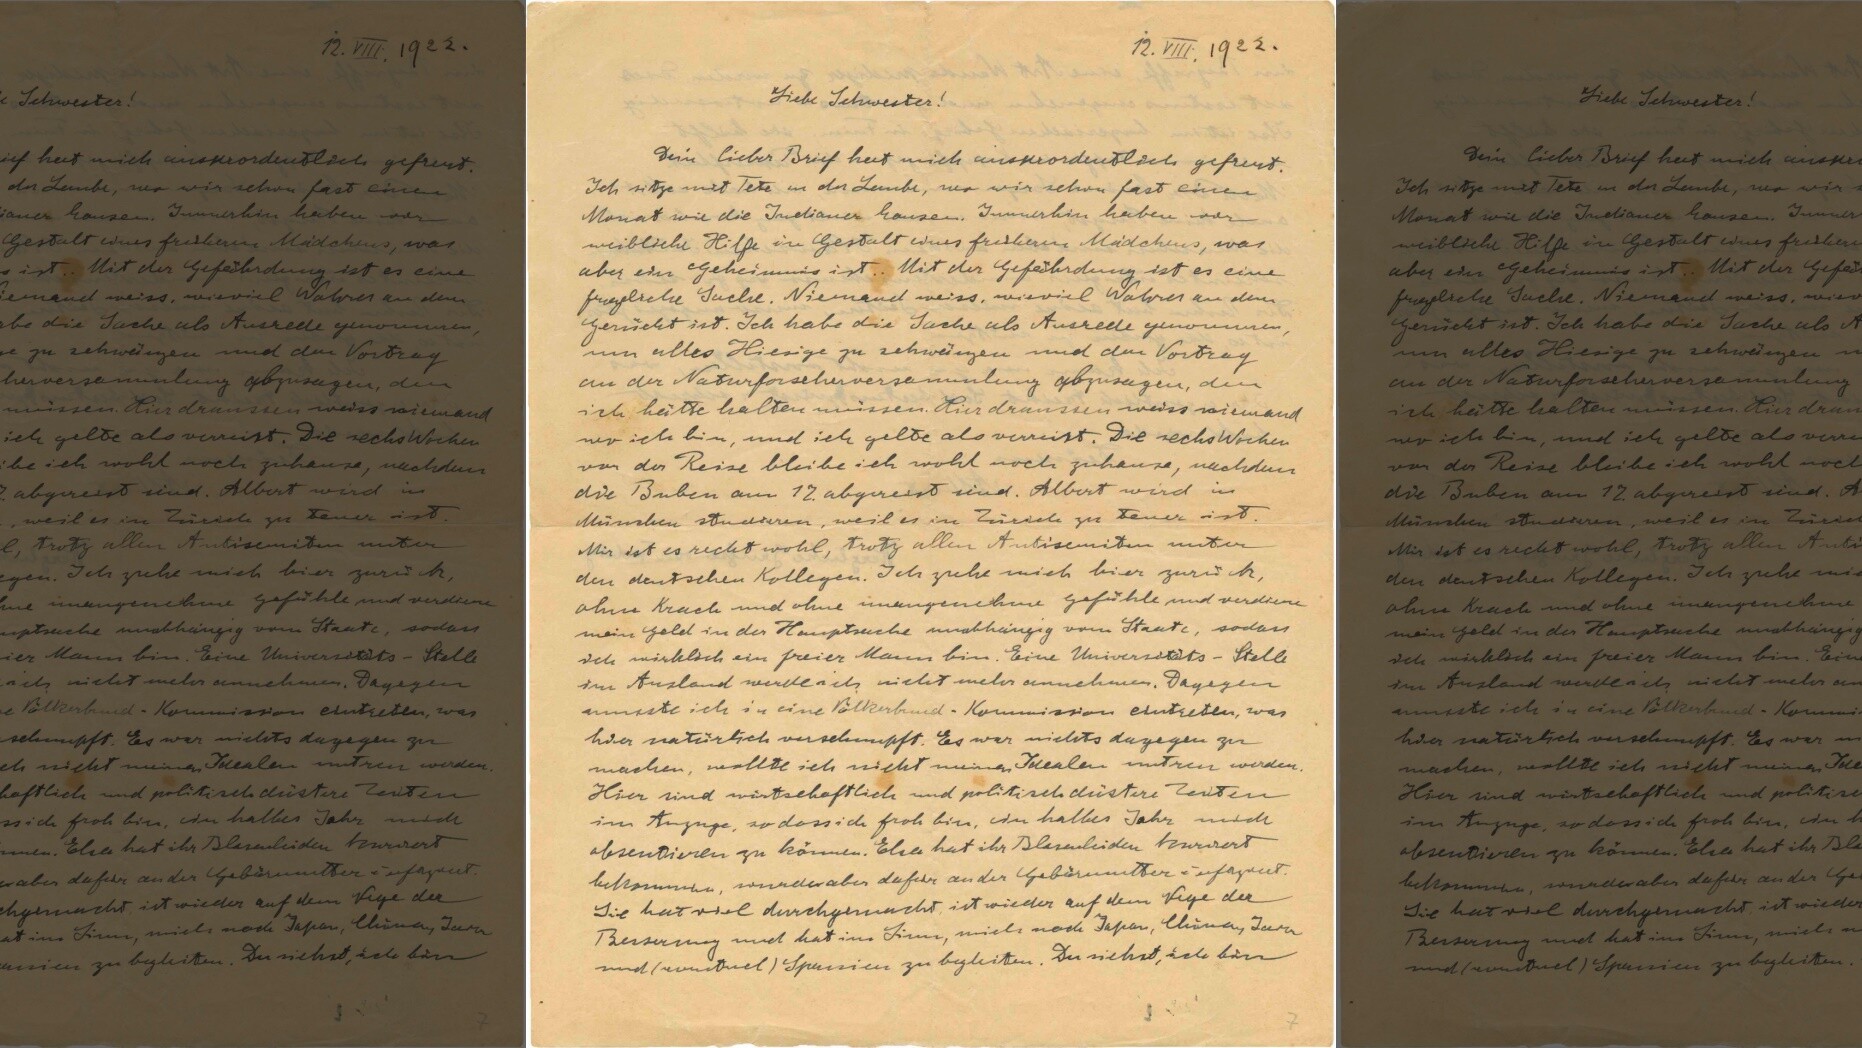 12. VIII. 1922.
Liebe Schwester!
Dein lieber Brief hat mich ausserordentlich gefreut.
Ich sitze mit Tete in der Laube, wo wir schon fast einen
Monat wie die Indianer hausen. Immerhin haben wir
weibliche Hilfe in Gestalt eines früheren Mädchens, was
aber ein Geheimnis ist.. Mit der Gefährdung ist es eine
fragliche Sache. Niemand weiss, wieviel Wahres an dem
Gerücht ist. Ich habe die Sache als Ausrede genommen,
um alles Hiesige zu schwänzen und den Vortrag
an der Naturforscherversammlung abzusagen, den
ich hätte halten müssen. Hier draussen weiss niemand
wo ich bin, und ich gelte als verreist. Die sechs Wochen
vor der Reise bleibe ich wohl noch zuhause, nachdem
die Buben am 17 abgereist sind. Albert wird in
München studieren, weil es in Zürich zu teuer ist.
Mir ist es recht wohl, trotz allen Antisemiten unter
den deutschen Kollegen. Ich ziehe mich hier zurück,
ohne Krach und ohne unangenehme Gefühle und verdiene
mein Geld in der Hauptsache unabhängig vom Staate, sodass
ich wirklich ein freier Mann bin. Eine Universitäts-Stelle
im Ausland werde ich nicht mehr annehmen. Dagegen
musste ich in eine Völkerbund-Kommission eintreten, was
hier natürlich verschnupft. Es war nichts dagegen zu
machen, wollte ich nicht meinen Idealen untreu werden.
Hier sind wirtschaftlich und politisch düstere Zeiten
im Anzuge, sodass ich froh bin, ein halbes Jahr mich
absentieren zu können. Elsa hat ihr Blasenleiden kuriert
bekommen, wurde aber dafür an der Gebärmutter infiziert.
Sie hat viel durchgemacht, ist wieder auf dem Wege der
Besserung und hat im Sinn, mich nach Japan, China, Java
und (eventuel) Spanien zu begleiten. Du siehst, ich bin
7